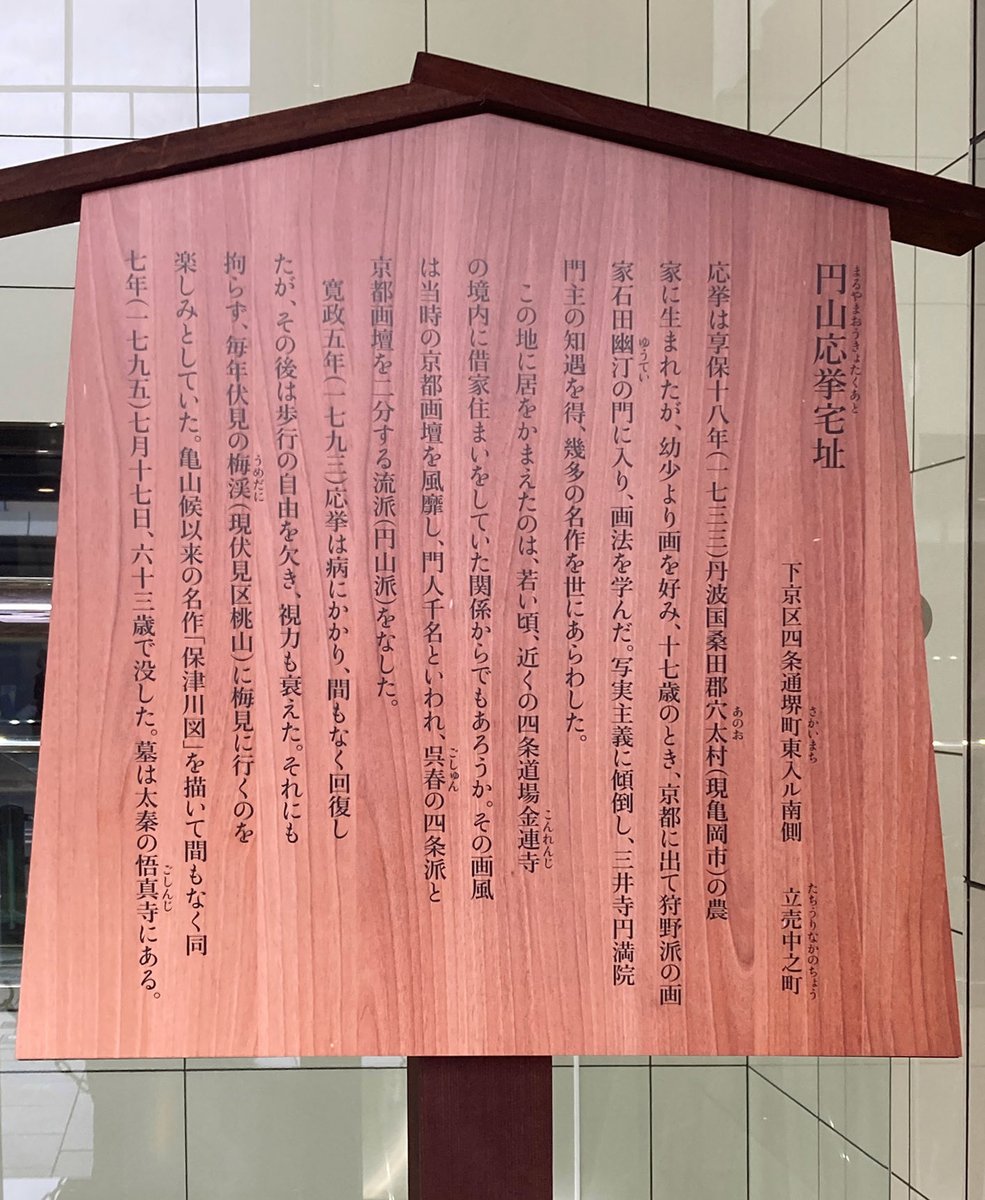 円山応挙宅址
まるやまおうきょたくあと
下京区四条通堺町東入ル南側　立売中之町
さかいまち
たちうりなかのちょう
応挙は享保十八年(一七三三)丹波国桑田郡穴太村(現亀岡市)の農
あのお
家に生まれたが、幼少より画を好み、十七歳のとき、京都に出て狩野派の画
家石田幽汀の門に入り、画法を学んだ。写実主義に傾倒し、三井寺円満院
ゆうてい
門主の知遇を得、幾多の名作を世にあらわした。
この地に居をかまえたのは、若い頃、近くの四条道場金連寺
こんれんじ
の境内に借家住まいをしていた関係からでもあろうか。その画風
は当時の京都画壇を風靡し、門人千名といわれ、呉春の四条派と
ごしゅん
京都画壇を二分する流派(円山派)をなした。
寛政五年(一七九三)応挙は病にかかり、間もなく回復し
たが、その後は歩行の自由を欠き、視力も衰えた。それにも
拘らず、毎年伏見の梅渓(現伏見区桃山)に梅見に行くのを
うめだに
楽しみとしていた。亀山候以来の名作「保津川図」を描いて間もなく同
七年(一七九五)七月十七日、六十三歳で没した。墓は太秦の悟真寺にある。
ごしんじ